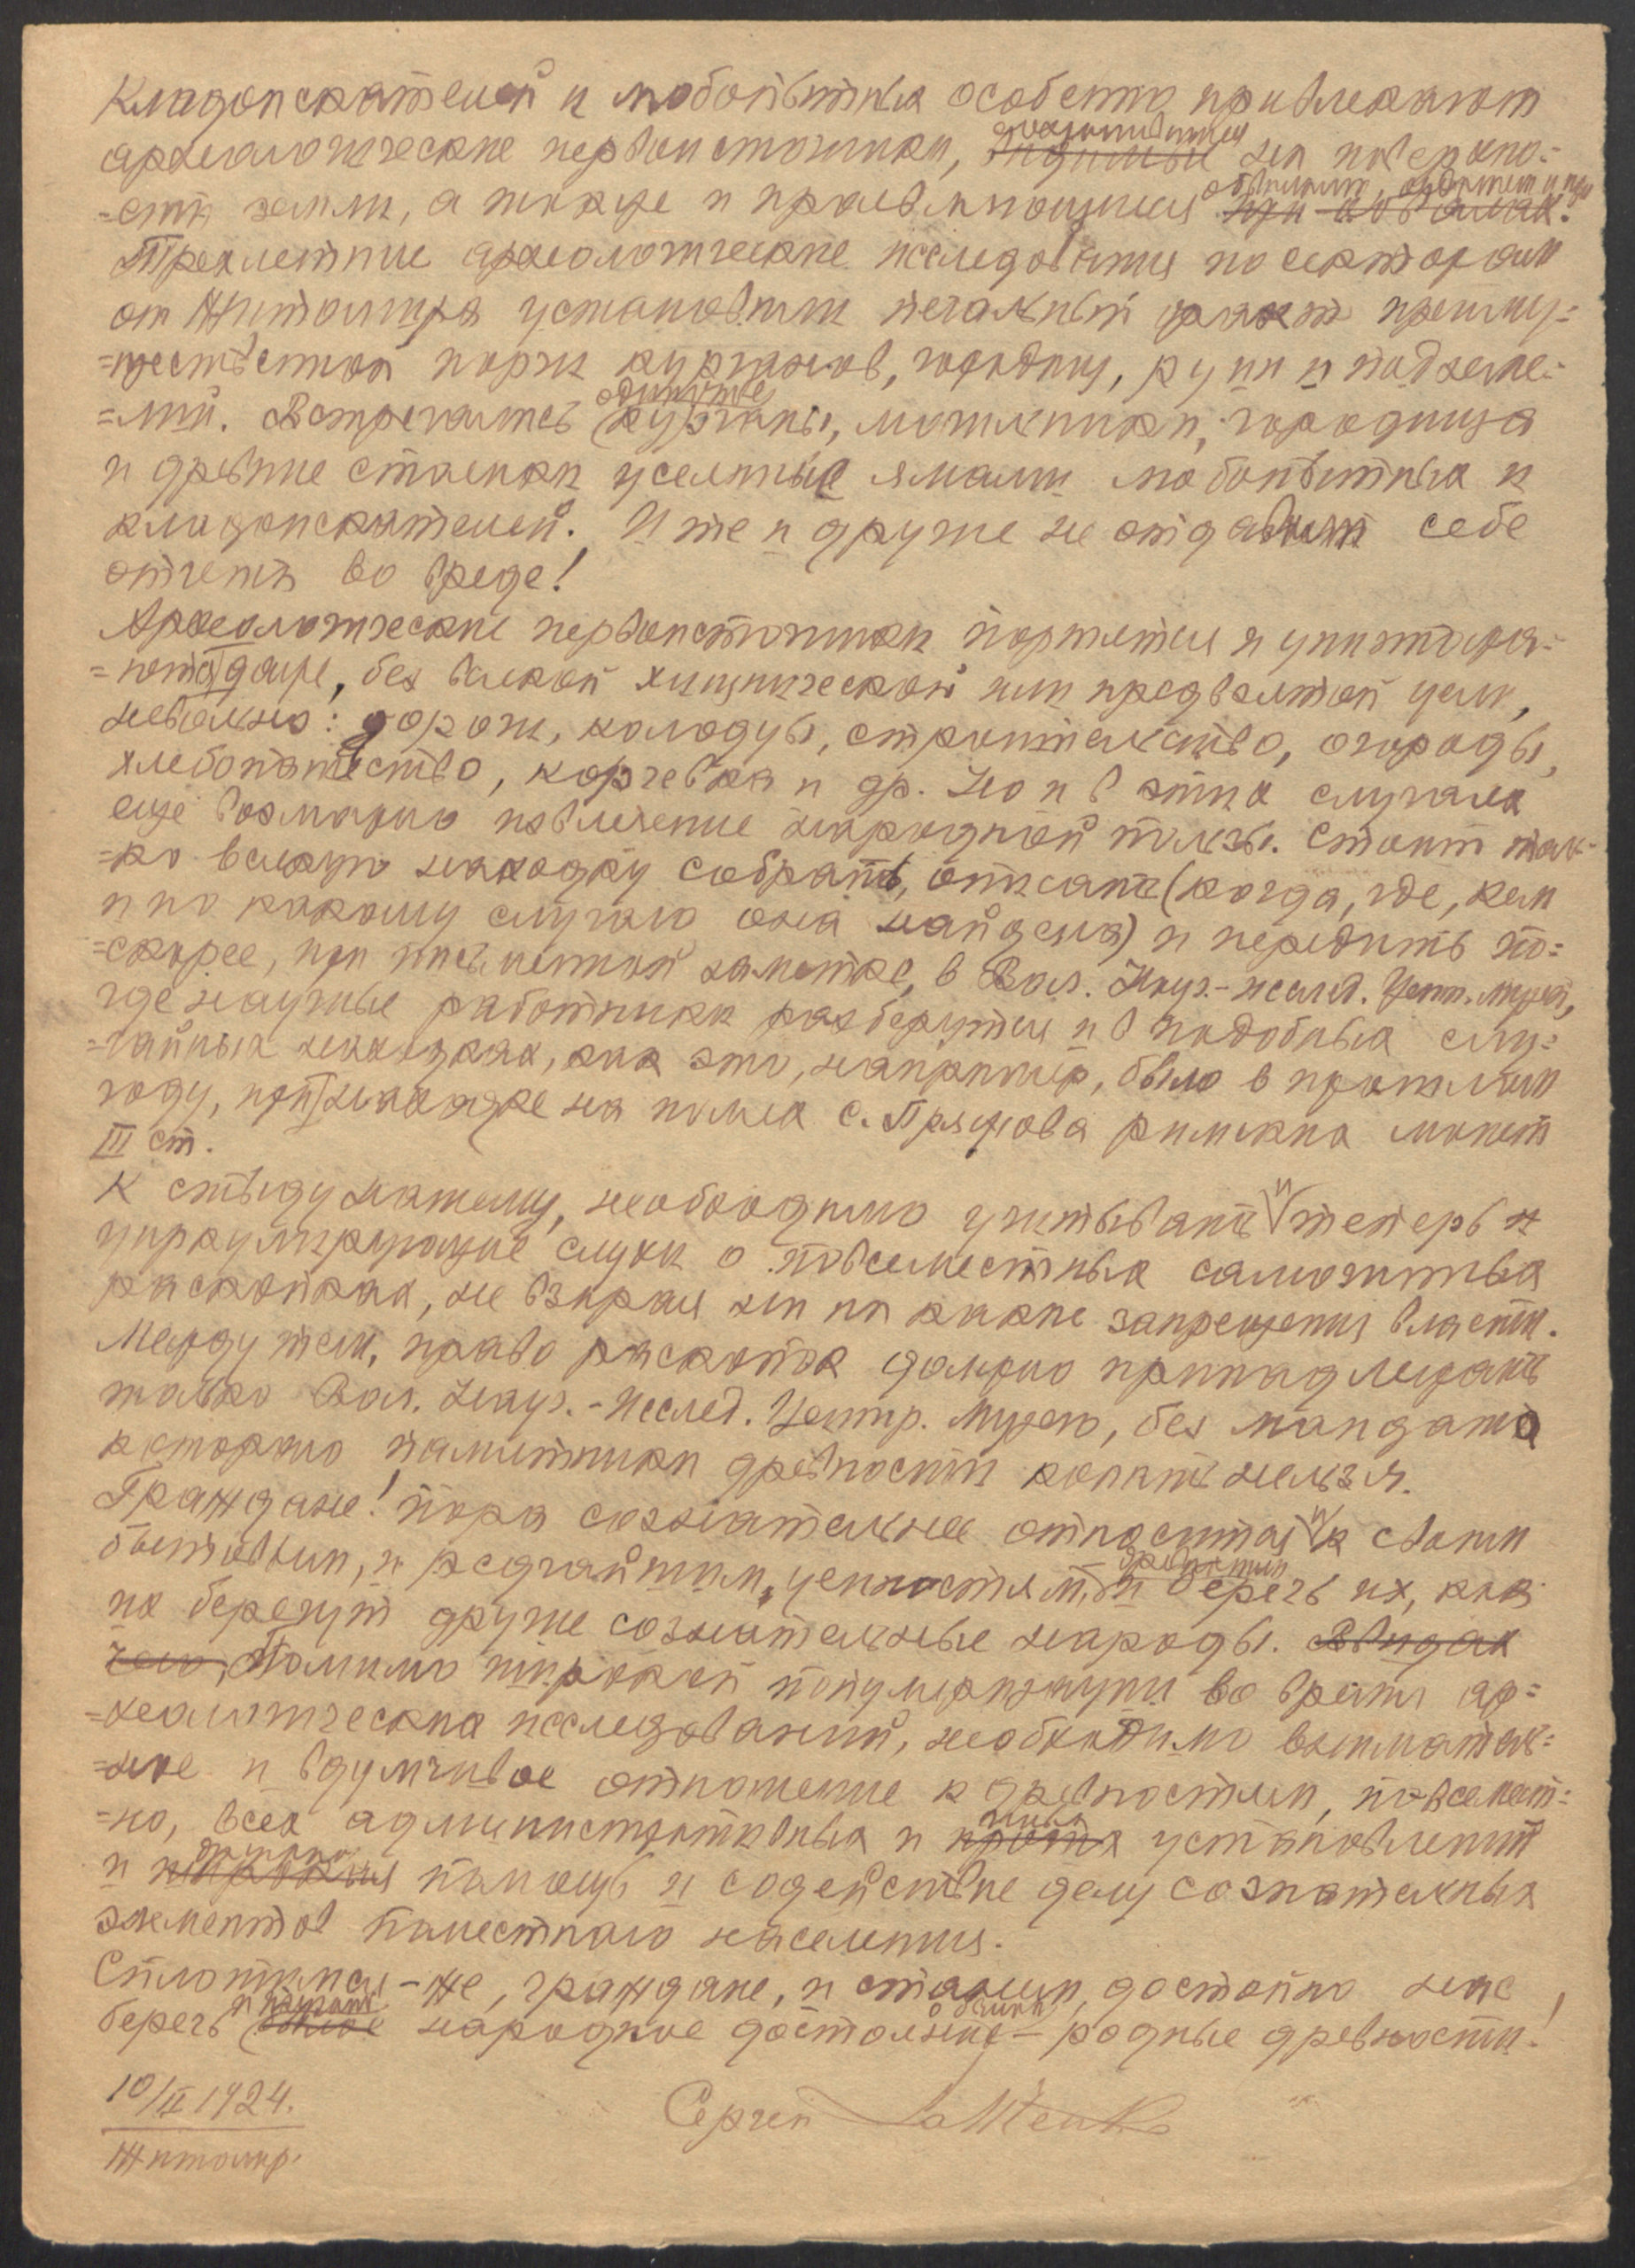 Кладоискателей и любопытных особенно привлекают
археологические первоисточники, оказывающиеся на поверхно-
=сти земли, а также и проявляющиеся
Трехлетние археологические исследования по секторам
от Житомира установили печальный факт преиму-
=щественной порчи курганов, городищ, руин и подземе-
=лий. Встречались одинокие курганы, могильники, городища
и древние стоянки усеянные ямами любопытных и
кладоискателей. И те и другие не отдавали себе
отчета во вреде!
Археологические первоисточники портятся и уничтожа-
=ются даже, без всякой хищнической или предвзятой цели,
невольно: дороги, колодцы, строительство, огороды,
хлебопашество, корчевка и др. Но и в этих случаях
еще возможно извлечение народной пользы. Стоит толь-
=ко всякую находку собрать, описать (когда, где, кем
и по какому случаю она найдена) и передать по-
=скорее, при письменной заметке, в Вол. Науч.-исслед. Центр. музей,
где научные работники разберутся и в подобных слу-
=чайных находках, как это, например, было в прошлом
году, при находке на полях с. Пряжова римских монет
III ст.
К стыду нашему, необходимо учитывать и теперь
циркулирующие слухи о повсеместных самочинных
раскопках, не взирая ни на какие запрещения власти.
Между тем, право раскопок должно принадлежать
только Вол. Науч.-Исслед. Центр. Музею, без мандата
которого памятники древности копать нельзя.
Граждане! пора сознательнее относится и к своим
бытовым, и редчайшим, ценностям древности и беречь их, как
их берегут другие сознательные народы. В видах
чего, Помимо широкой популяризации во время ар-
=хеологических исследований, необходимо вниматель-
=ное и вдумчивое отношение к древностям, повсемест-
=но, всех административных и иных установлений
и помощь и содействие делу сознательных
элементов поместного населения.
Сплотимся-же, граждане, и станем достойно нас
беречь и изучать народное достояние – родные древности!
10/II 1924.
Житомир.
Сергей Гамченко